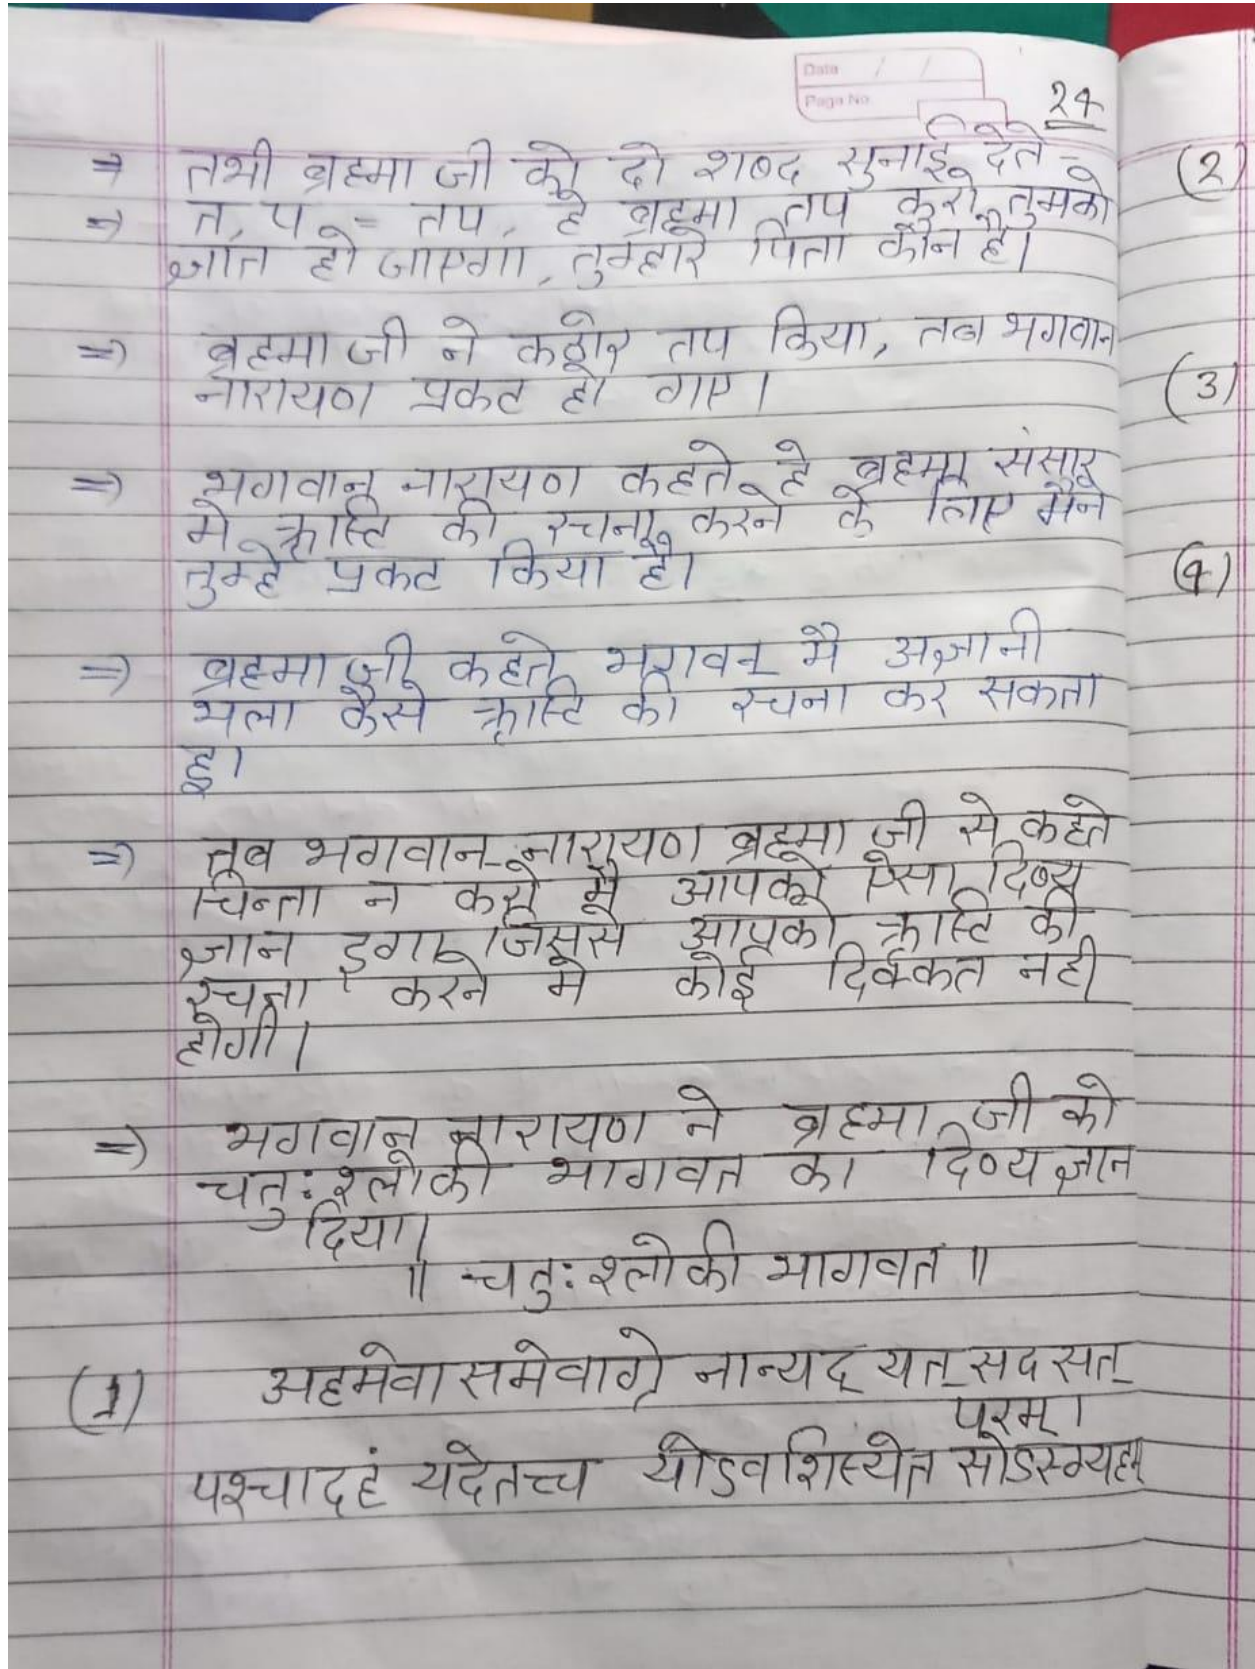 Date / /
Page No.
24
⇒ तभी ब्रह्मा जी को दो शब्द सुनाई देते -
⇒ त, प = तप, हे ब्रह्मा तप करो, तुमको
ज्ञात हो जाएगा, तुम्हारे पिता कौन है।
⇒ ब्रह्मा जी ने कठोर तप किया, तब भगवान
नारायण प्रकट हो गए।
⇒ भगवान नारायण कहते हे ब्रह्मा संसार
मे की रचना करने के लिए मैने
तुम्हे प्रकट किया है।
⇒ ब्रह्मा जी कहते भगवन् मै अज्ञानी
भला कैसे की रचना कर सकता
हु।
⇒ तब भगवान नारायण ब्रह्मा जी से कहते
चिन्ता न करो मै आपको ऐसा दिव्य
ज्ञान जिससे आपको की
रचना करने मे कोई दिक्कत नही
होगी।
⇒ भगवान नारायण ने ब्रह्मा जी को
चतु:श्लोकी भागवत का दिव्य ज्ञान
दिया।
॥ चतु:श्लोकी भागवत ॥
(1) अहमेवासमेवाग्रे नान्यद् यत् सदसत्
परम्।
पश्चादहं यदेतच्च योऽवशिस्येत सोऽस्म्यहम्
(2)
(3)
(4)